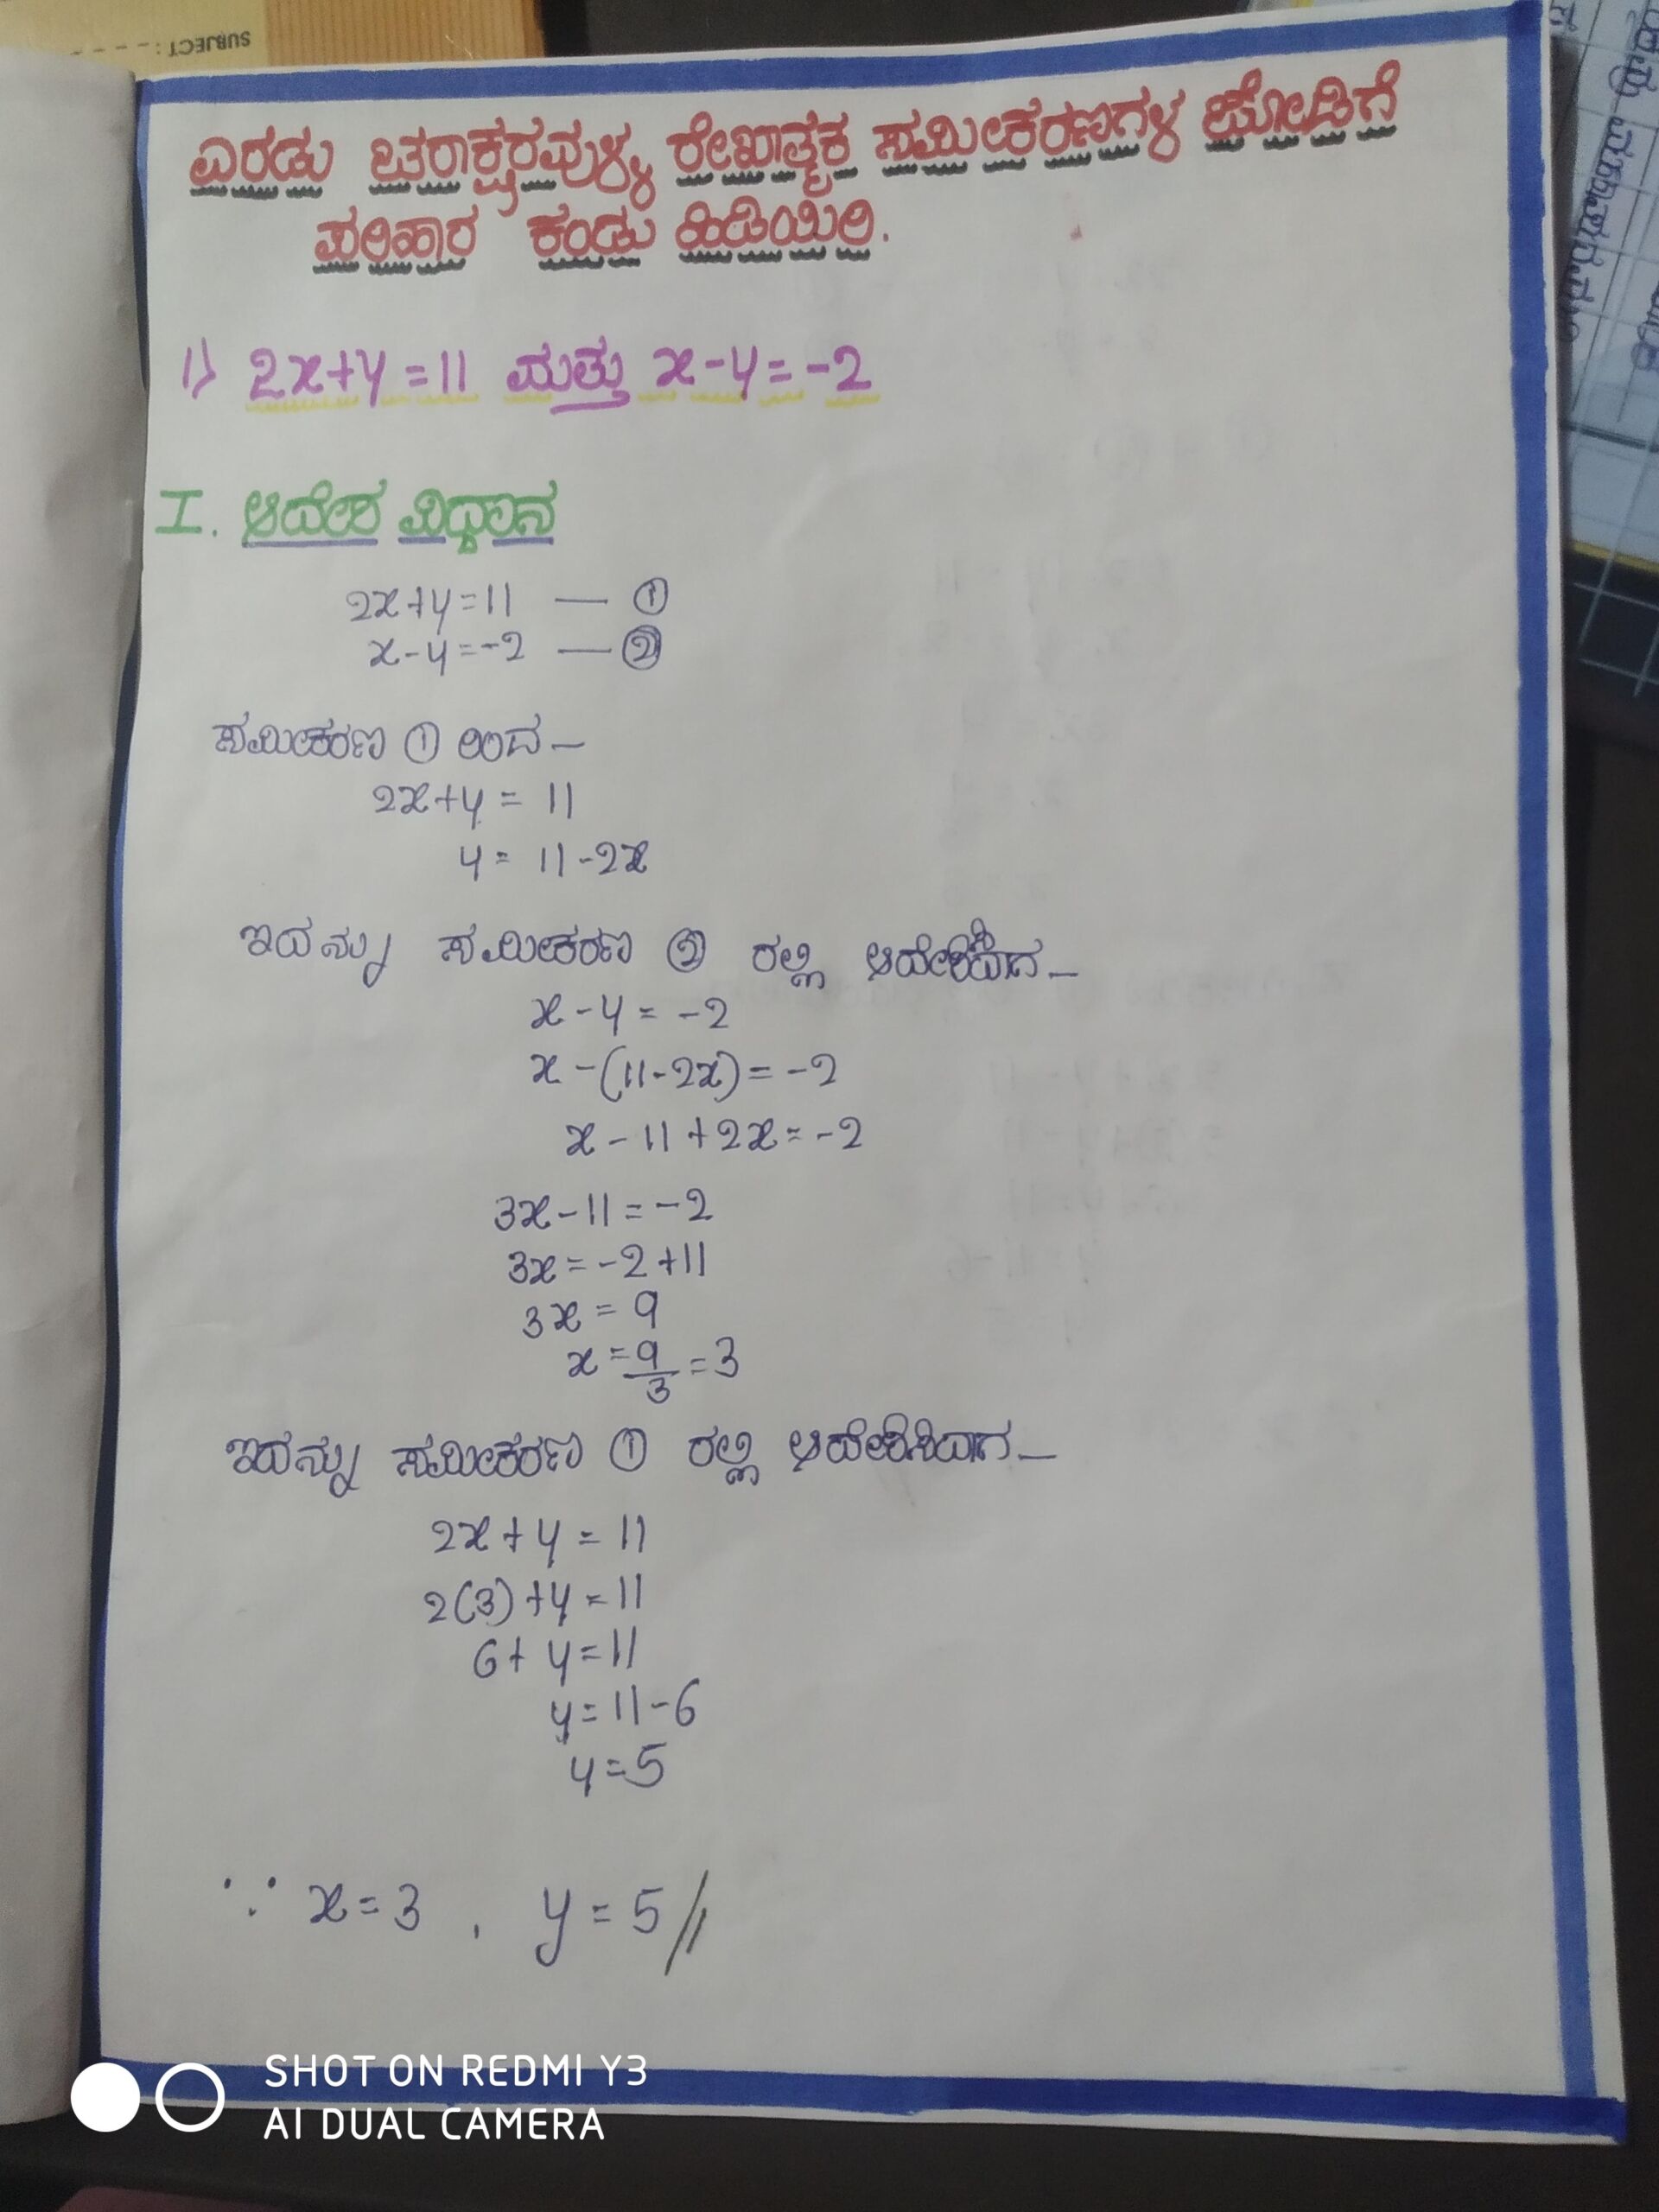 SUBJECT:
ಎರಡು ಚರಾಕ್ಷರವುಳ್ಳ ರೇಖಾತ್ಮಕ ಸಮೀಕರಣಗಳ ಜೋಡಿಗೆ
ಪರಿಹಾರ ಕಂಡು ಹಿಡಿಯಿರಿ.
1) 2x+y=11 ಮತ್ತು x-y=-2
I. ಆದೇಶ ವಿಧಾನ
2x+y=11 — ①
x-y=-2 — ②
ಸಮೀಕರಣ ① ರಿಂದ –
2x+y = 11
y = 11-2x
ಇದನ್ನು ಸಮೀಕರಣ ② ರಲ್ಲಿ –
x-y = -2
x-(11-2x) = -2
x-11+2x = -2
3x-11 = -2
3x = -2+11
3x = 9
x = 9/3 = 3
ಇದನ್ನು ಸಮೀಕರಣ ① ರಲ್ಲಿ ಆದೇಶಿಸಿದಾಗ –
2x+y = 11
2(3)+y = 11
6+y = 11
y = 11-6
y = 5
∵ x=3, y=5//
SHOT ON REDMI Y3
AI DUAL CAMERA